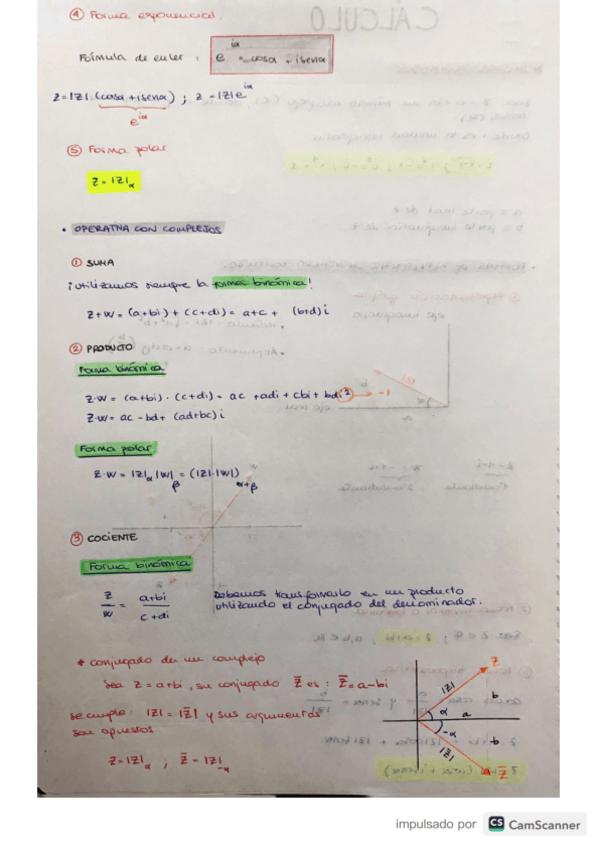 ④ Forma exponencial.
Fórmula de euler : e^iα = cosα + isenα
Z = |Z| (cosα + isenα) ; z = |Z|e^iα
e^iα
⑤ Forma polar
Z = |Z|α
• OPERATIVA CON COMPLEJOS
① SUMA
¡Utilizamos siempre la forma binómica!
Z+W = (a+bi) + (c+di) = a+c + (b+d)i
② PRODUCTO
Forma binómica
Z·W = (a+bi) · (c+di) = ac + adi + cbi + bdi² → -1
Z·W = ac - bd + (ad+bc)i
Forma polar
Z·W = |Z|α |W|β = (|Z|·|W|)α+β
③ COCIENTE
Forma binómica
Z/W = a+bi/c+di Debemos transformarlo en un producto
utilizando el conjugado del denominador.
* conjugado de un complejo
Sea Z = a+bi, su conjugado Z̅ es : Z̅ = a-bi
se cumple: |Z| = |Z̅| y sus argumentos
son opuestos
Z = |Z|α ; Z̅ = |Z|-α
Z
|Z|
b
α
a
-α
b
|Z|
Z̅
impulsado por CS CamScanner